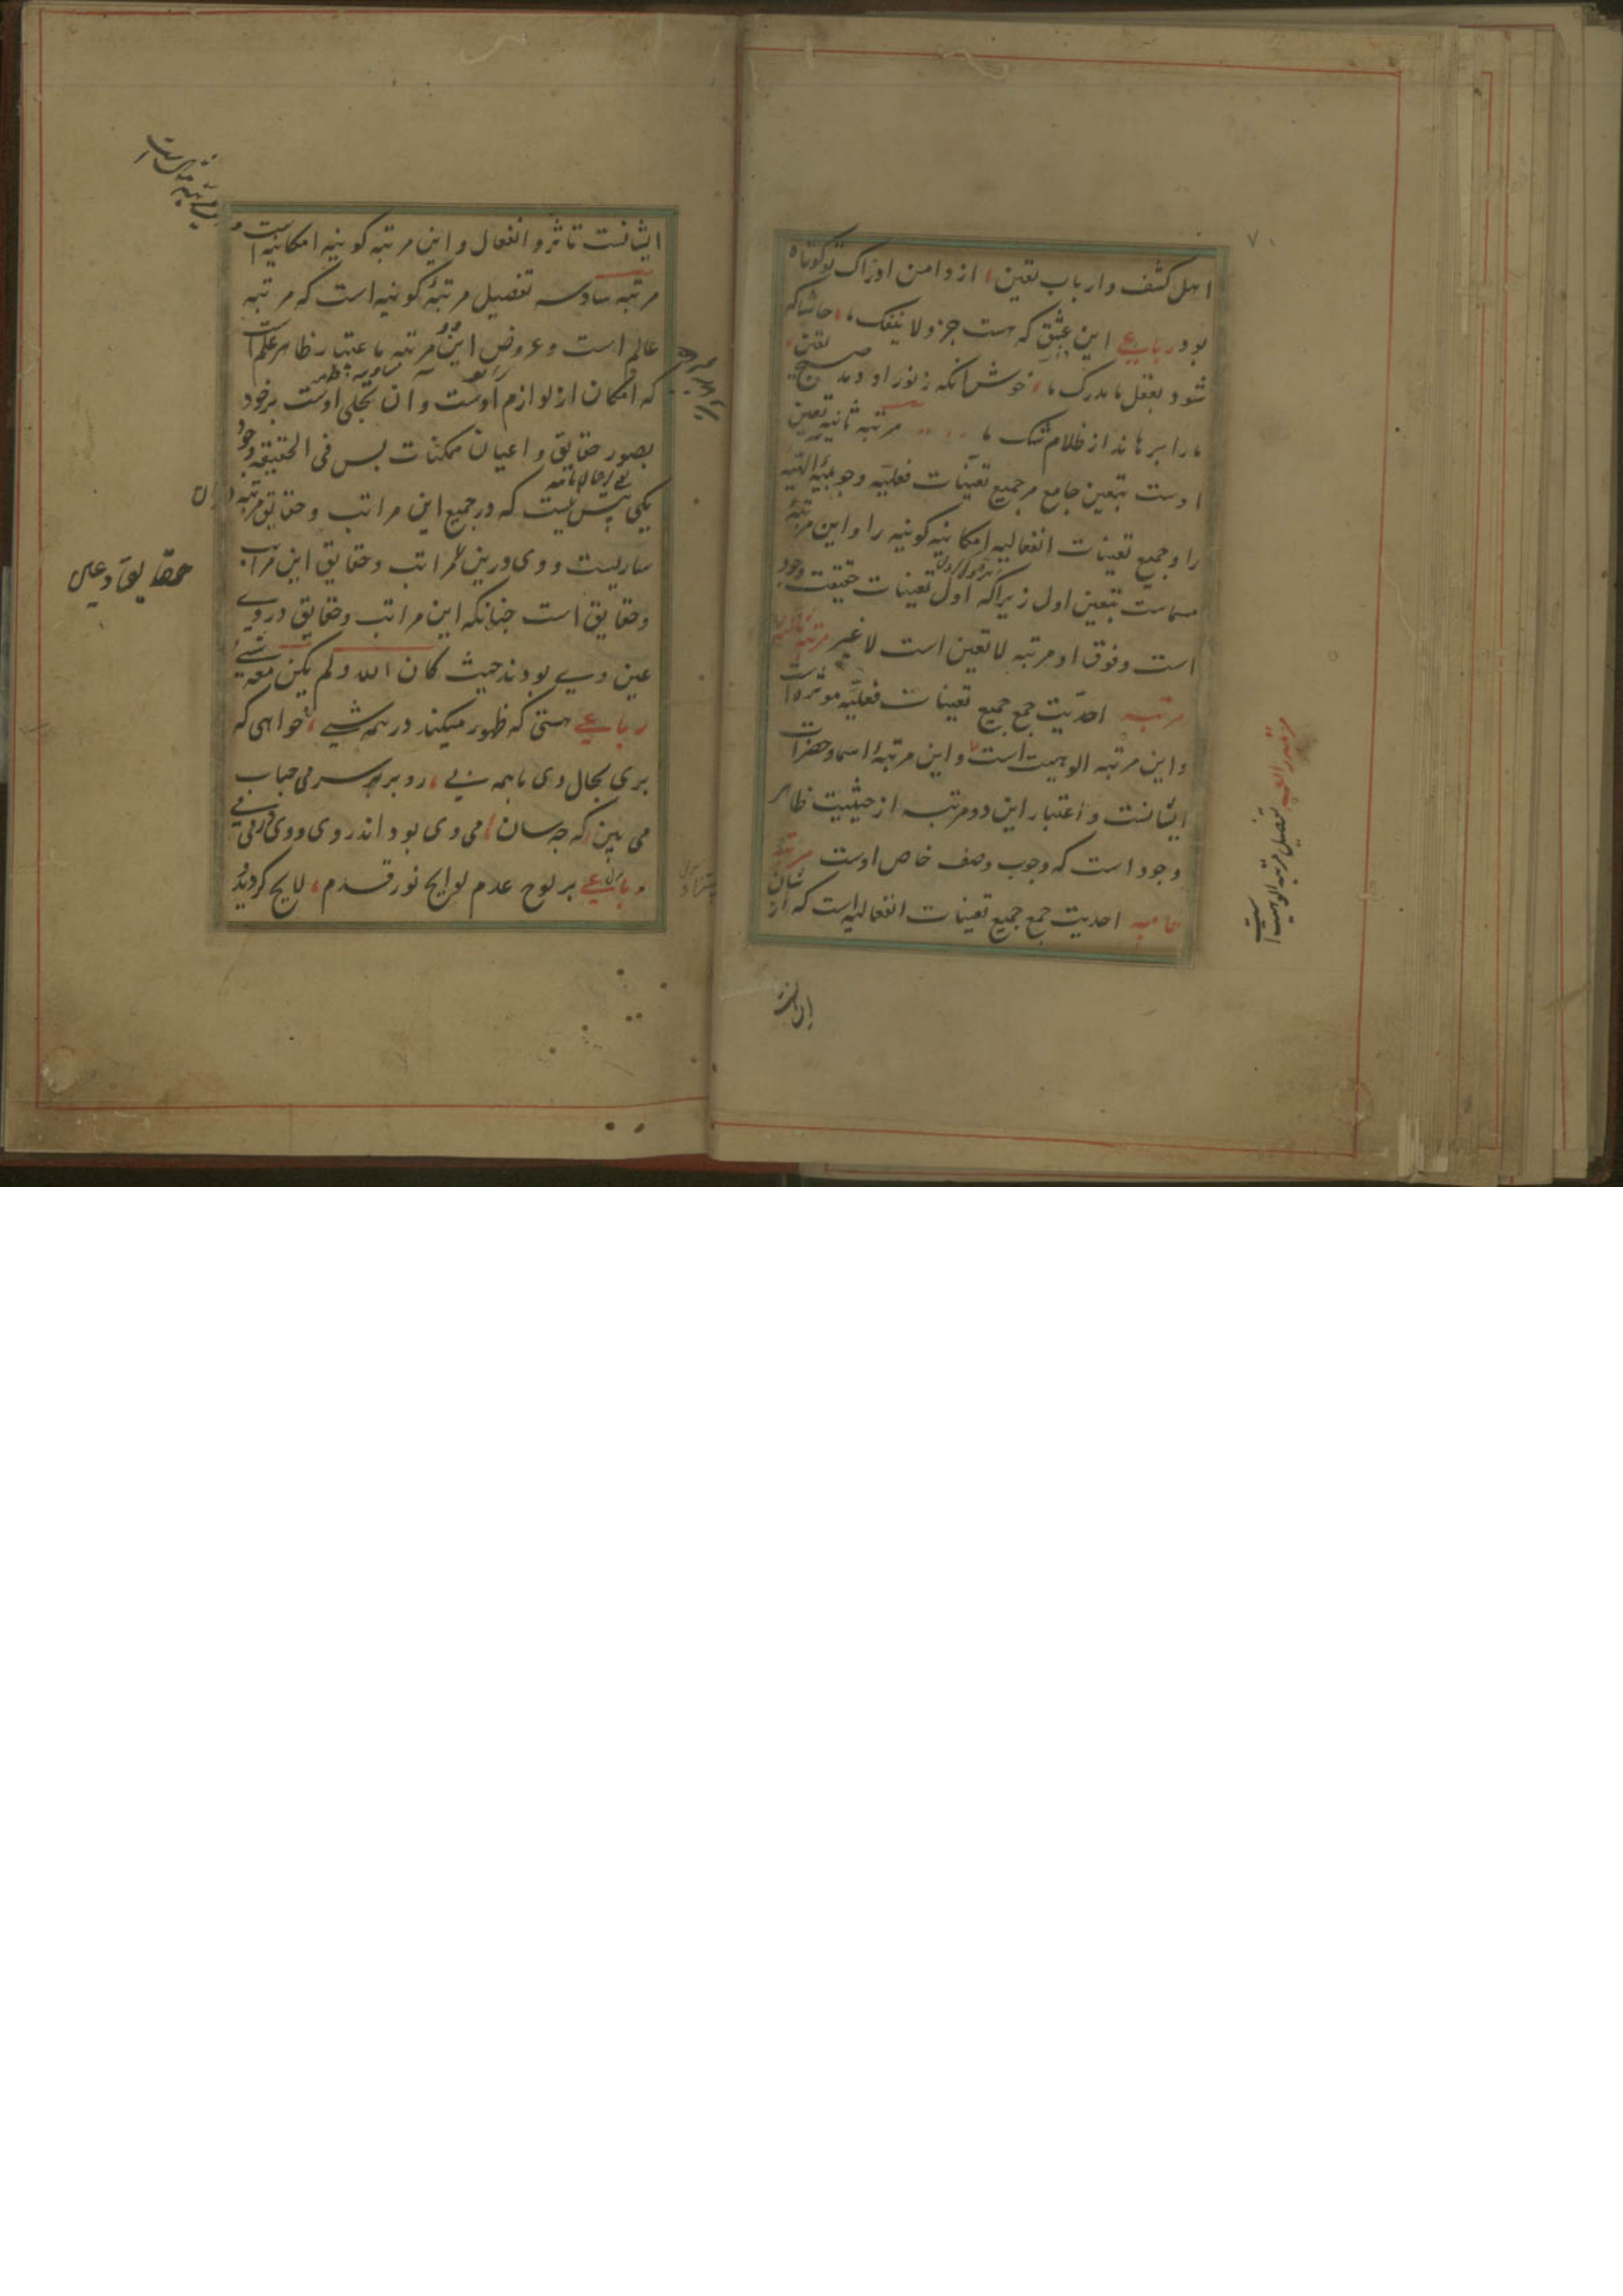 اهل کشف و ارباب یقین، از دامن ادراک تو کوتاه
بود رباعی این عشق که هست جزو لا ینفک ما، حاشا که
شود بعقل ما مدرک ما، خوش آنکه ز نور او دمد صبح یقین،
ما را برهاند از ظلام شک ما مرتبه ثانیه تعین
اوست بتعین جامع مر جمیع تعینات فعلیه وجوبیه الهیه
را و جمیع تعینات انفعالیه امکانیه کونیه را و این مرتبه
مسماست بتعین اول زیرا که اول تعینات حقیقت وجود
است و فوق او مرتبه لا تعین است لا غیر مرتبه ثالثه
مرتبه احدیت جمع جمیع تعینات فعلیه موثره است
و این مرتبه الوهیت است و این مرتبه اسما و حضرات
ایشانست و اعتبار این دو مرتبه از حیثیت ظاهر
وجود است که وجوب وصف خاص اوست مرتبه
خامسه احدیت جمع جمیع تعینات انفعالیه است که از شان
مرتبه رابعه تفصیل مرتبه الوهیت است
ایشانست
ایشانست تاثر و انفعال و این مرتبه کونیه امکانیه است و
مرتبه سادسه تفصیل مرتبه کونیه است که مرتبه
عالم است و عروض این دو مرتبه باعتبار ظاهر علم است
که امکان از لوازم اوست و آن تجلی اوست بر خود
بصور حقایق و اعیان ممکنات بس فی الحقیقه وجود
یکی بیش نیست که در جمیع این مراتب و حقایق مرتبه در آن
ساریست و وی درین مراتب و حقایق این مراتب
و حقایق است جنانکه این مراتب و حقایق در وی
عین وی بودند حیث کان الله و لم یکن معه شیء
رباعی هستی که ظهور میکند در همه شی، خواهی که
بری بحال وی با همه پی، رو بر سر می حباب
می بین که جه سان، می وی بود اندر وی و وی در می
رباعی بر لوح عدم لوایح نور قدم، لایح کردید
حقایق و عین